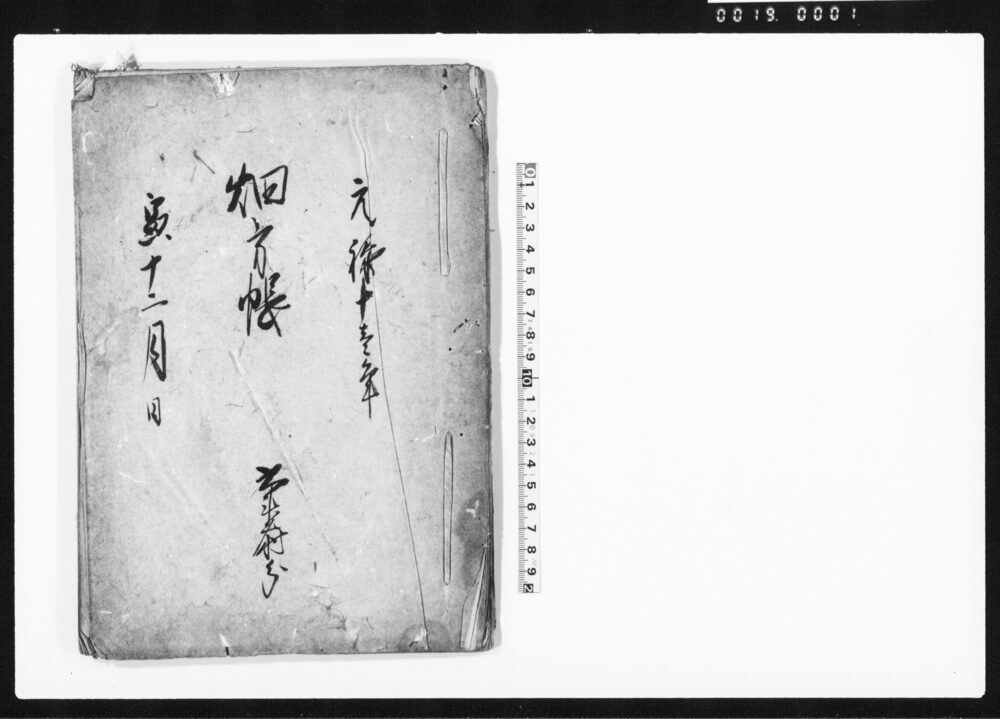 0019 0001
元禄十壱年
畑方帳
寅十二月日
0 1 2 3 4 5 6 7 8 9 10 1 2 3 4 5 6 7 8 9 2